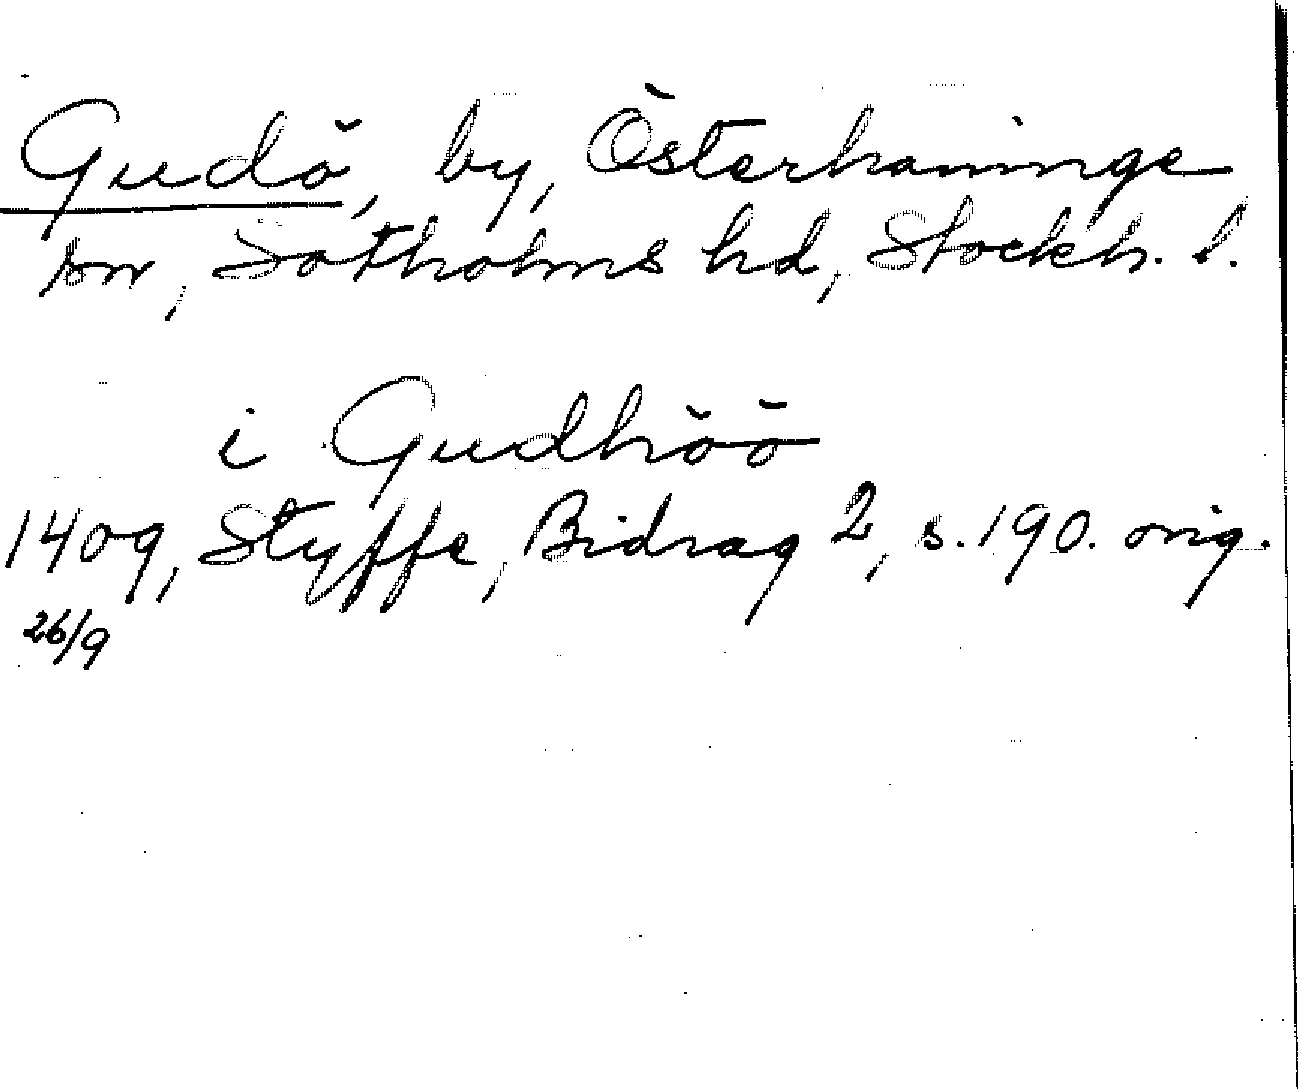 Gudö, by, Österhaninge
sn, Sotholms hd, Stockh. l.
i Gudhöö
1409, Styffe, Bidrag 2, s. 190. orig.
26/9